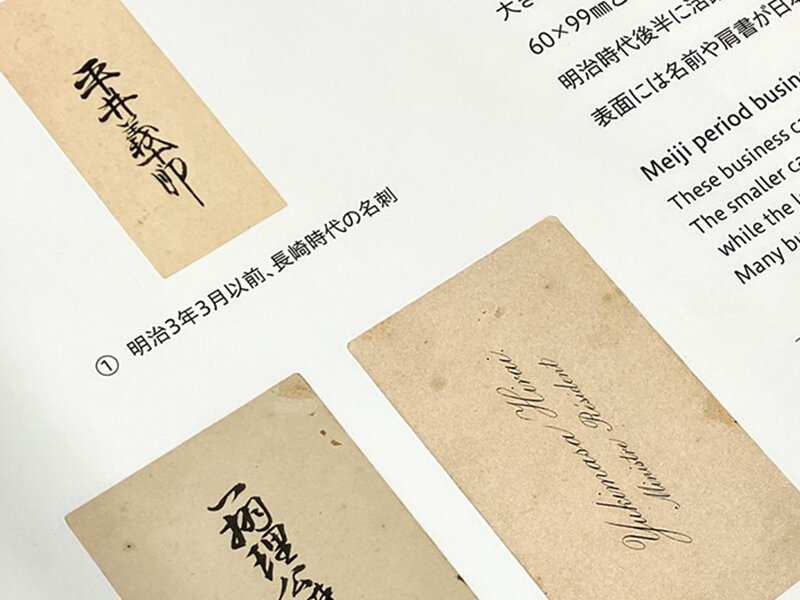 平井義十郎
① 明治3年3月以前、長崎時代の名刺
大き
60×99㎜と
明治時代後半に活
表面には名前や肩書が日本
Meiji period busin
These business ca
The smaller ca
while the l
Many bu
理公
Yukimasa Hirai.
Ministre Résident